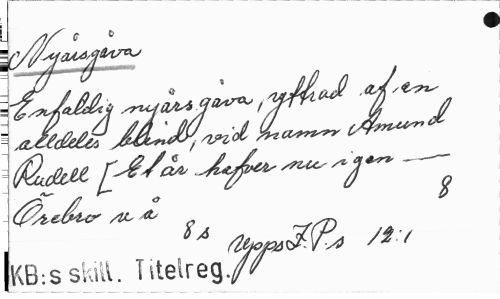 Nyårsgåva
Enfaldig nyårsgåva, yttrad af en
alldeles blind, vid namn Amund
Rudell [Et år hafver nu igen —
Örebro u å 8
8 s Upps F.P.s 12:1
KB:s skill. Titelreg.